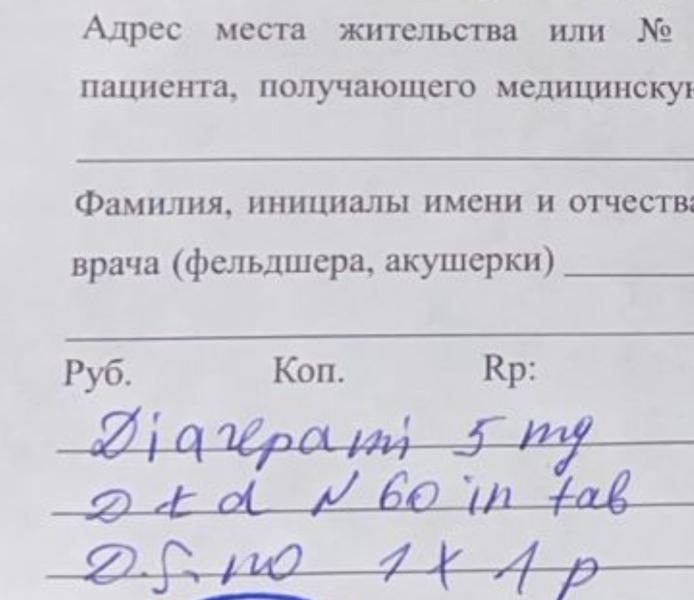 Адрес места жительства или №
пациента, получающего медицинскую
Фамилия, инициалы имени и отчества
врача (фельдшера, акушерки)
Руб. Коп. Rp:
Diazepami 5 mg
D t d N 60 in tab
D.S. по 1 x 1 р